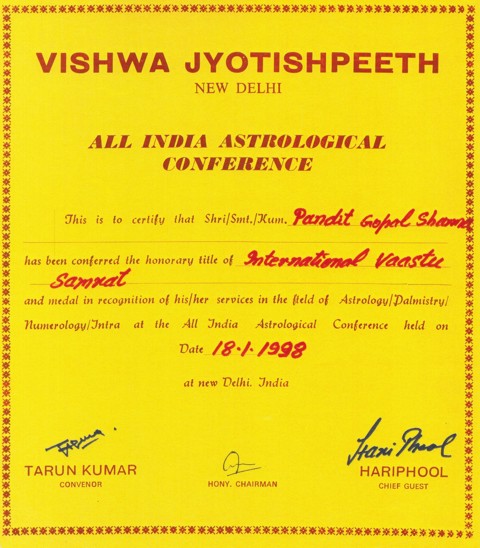 VISHWA JYOTISHPEETH
NEW DELHI
ALL INDIA ASTROLOGICAL
CONFERENCE
This is to certify that Shri/Smt./Kum. Pandit Gopal Sharma
has been conferred the honorary title of International Vaastu
Samrat
and medal in recognition of his/her services in the field of Astrology/Palmistry/
Numerology/Intra at the All India Astrological Conference held on
Date 18.1.1998
at new Delhi. India
Hari Phool
TARUN KUMAR HARIPHOOL
CONVENOR HONY. CHAIRMAN CHIEF GUEST